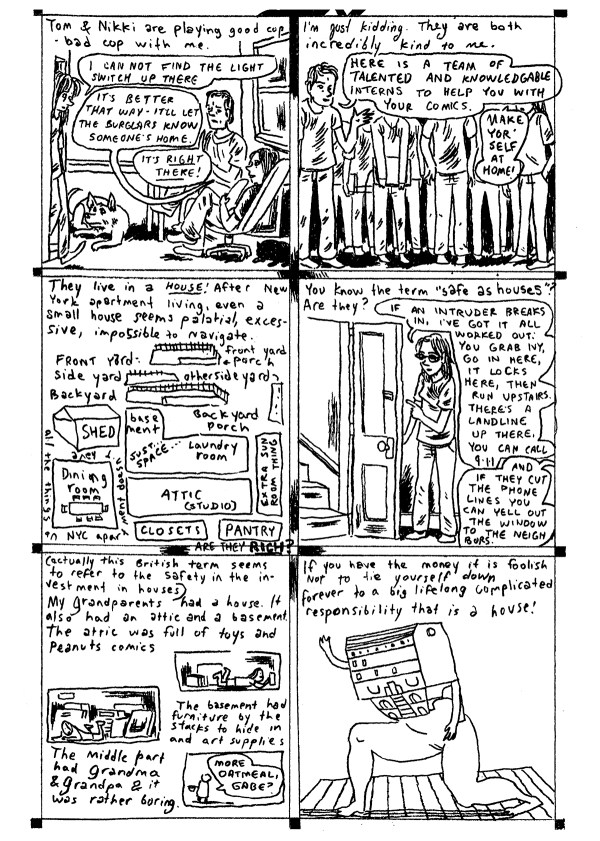 Tom & Nikki are playing good cop
- bad cop with me.
I CAN NOT FIND THE LIGHT
SWITCH UP THERE
IT'S BETTER
THAT WAY - IT'LL LET
THE BURGLARS KNOW
SOMEONE'S HOME.
IT'S RIGHT
THERE!
I'm just kidding. They are both
incredibly kind to me.
HERE IS A TEAM OF
TALENTED AND KNOWLEDGABLE
INTERNS TO HELP YOU WITH
YOUR COMICS.
MAKE
YOR'
SELF
AT
HOME!
They live in a HOUSE! After New
York apartment living, even a
small house seems palatial, exces-
sive, impossible to navigate.
FRONT YARD:
front yard
+ porch
Side yard
other side yard
Backyard
SHED
base
ment
Backyard
Porch
JUST...
SPACE...
Laundry
room
EXTRA SUN
ROOM THING
Dining
room
ATTIC
(STUDIO)
all the things
they
want
in NYC apart
CLOSETS
PANTRY
ARE THEY RICH?
You know the term "safe as houses"?
Are they?
IF AN INTRUDER BREAKS
IN, I'VE GOT IT ALL
WORKED OUT:
YOU GRAB IVY,
GO IN HERE,
IT LOCKS
HERE, THEN
RUN UPSTAIRS.
THERE'S A
LANDLINE
UP THERE,
YOU CAN CALL
9-11
AND
IF THEY CUT
THE PHONE
LINES YOU
CAN YELL OUT
THE WINDOW
TO THE NEIGH
BORS.
(actually this British term seems
to refer to the safety in the in-
vestment in houses)
My grandparents had a house. It
also had an attic and a basement.
The attic was full of toys and
Peanuts comics
The basement had
furniture by the
stacks to hide in
and art supplies
The middle part
had grandma
& grandpa & it
was rather boring.
MORE
OATMEAL,
GABE?
If you have the money it is foolish
not to tie yourself down
forever to a big lifelong complicated
responsibility that is a house!